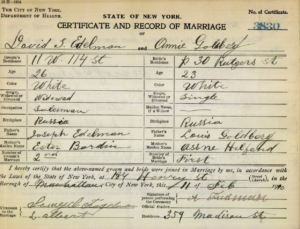 THE CITY OF NEW YORK. STATE OF NEW YORK. No. of Certificate.
DEPARTMENT OF HEALTH.
CERTIFICATE AND RECORD OF MARRIAGE 3830
OF
David J. Edelman and Annie Goldberg
Groom's Residence 11 W 114 St Bride's Residence 230 Rutgers St
Age 26 Age 23
Color White Color White
Single, Widowed or Divorced Widowed Single, Widowed or Divorced Single
Occupation Salesman Maiden Name, if a Widow
Birthplace Russia Birthplace Russia
Father's Name Joseph Edelman Father's Name Louis Goldberg
Mother's Maiden Name Ester Mother's Maiden Name
Number of Groom's Marriage 2nd Number of Bride's Marriage First
I hereby certify that the above-named groom and bride were joined in Marriage by me, in accordance
with the Laws of the State of New York, at 184 Henry St (Street),
in the Borough of Manhattan City of New York, this 11 of Feb
Signature of person performing the Ceremony
Official Station
Residence 354 Madison St